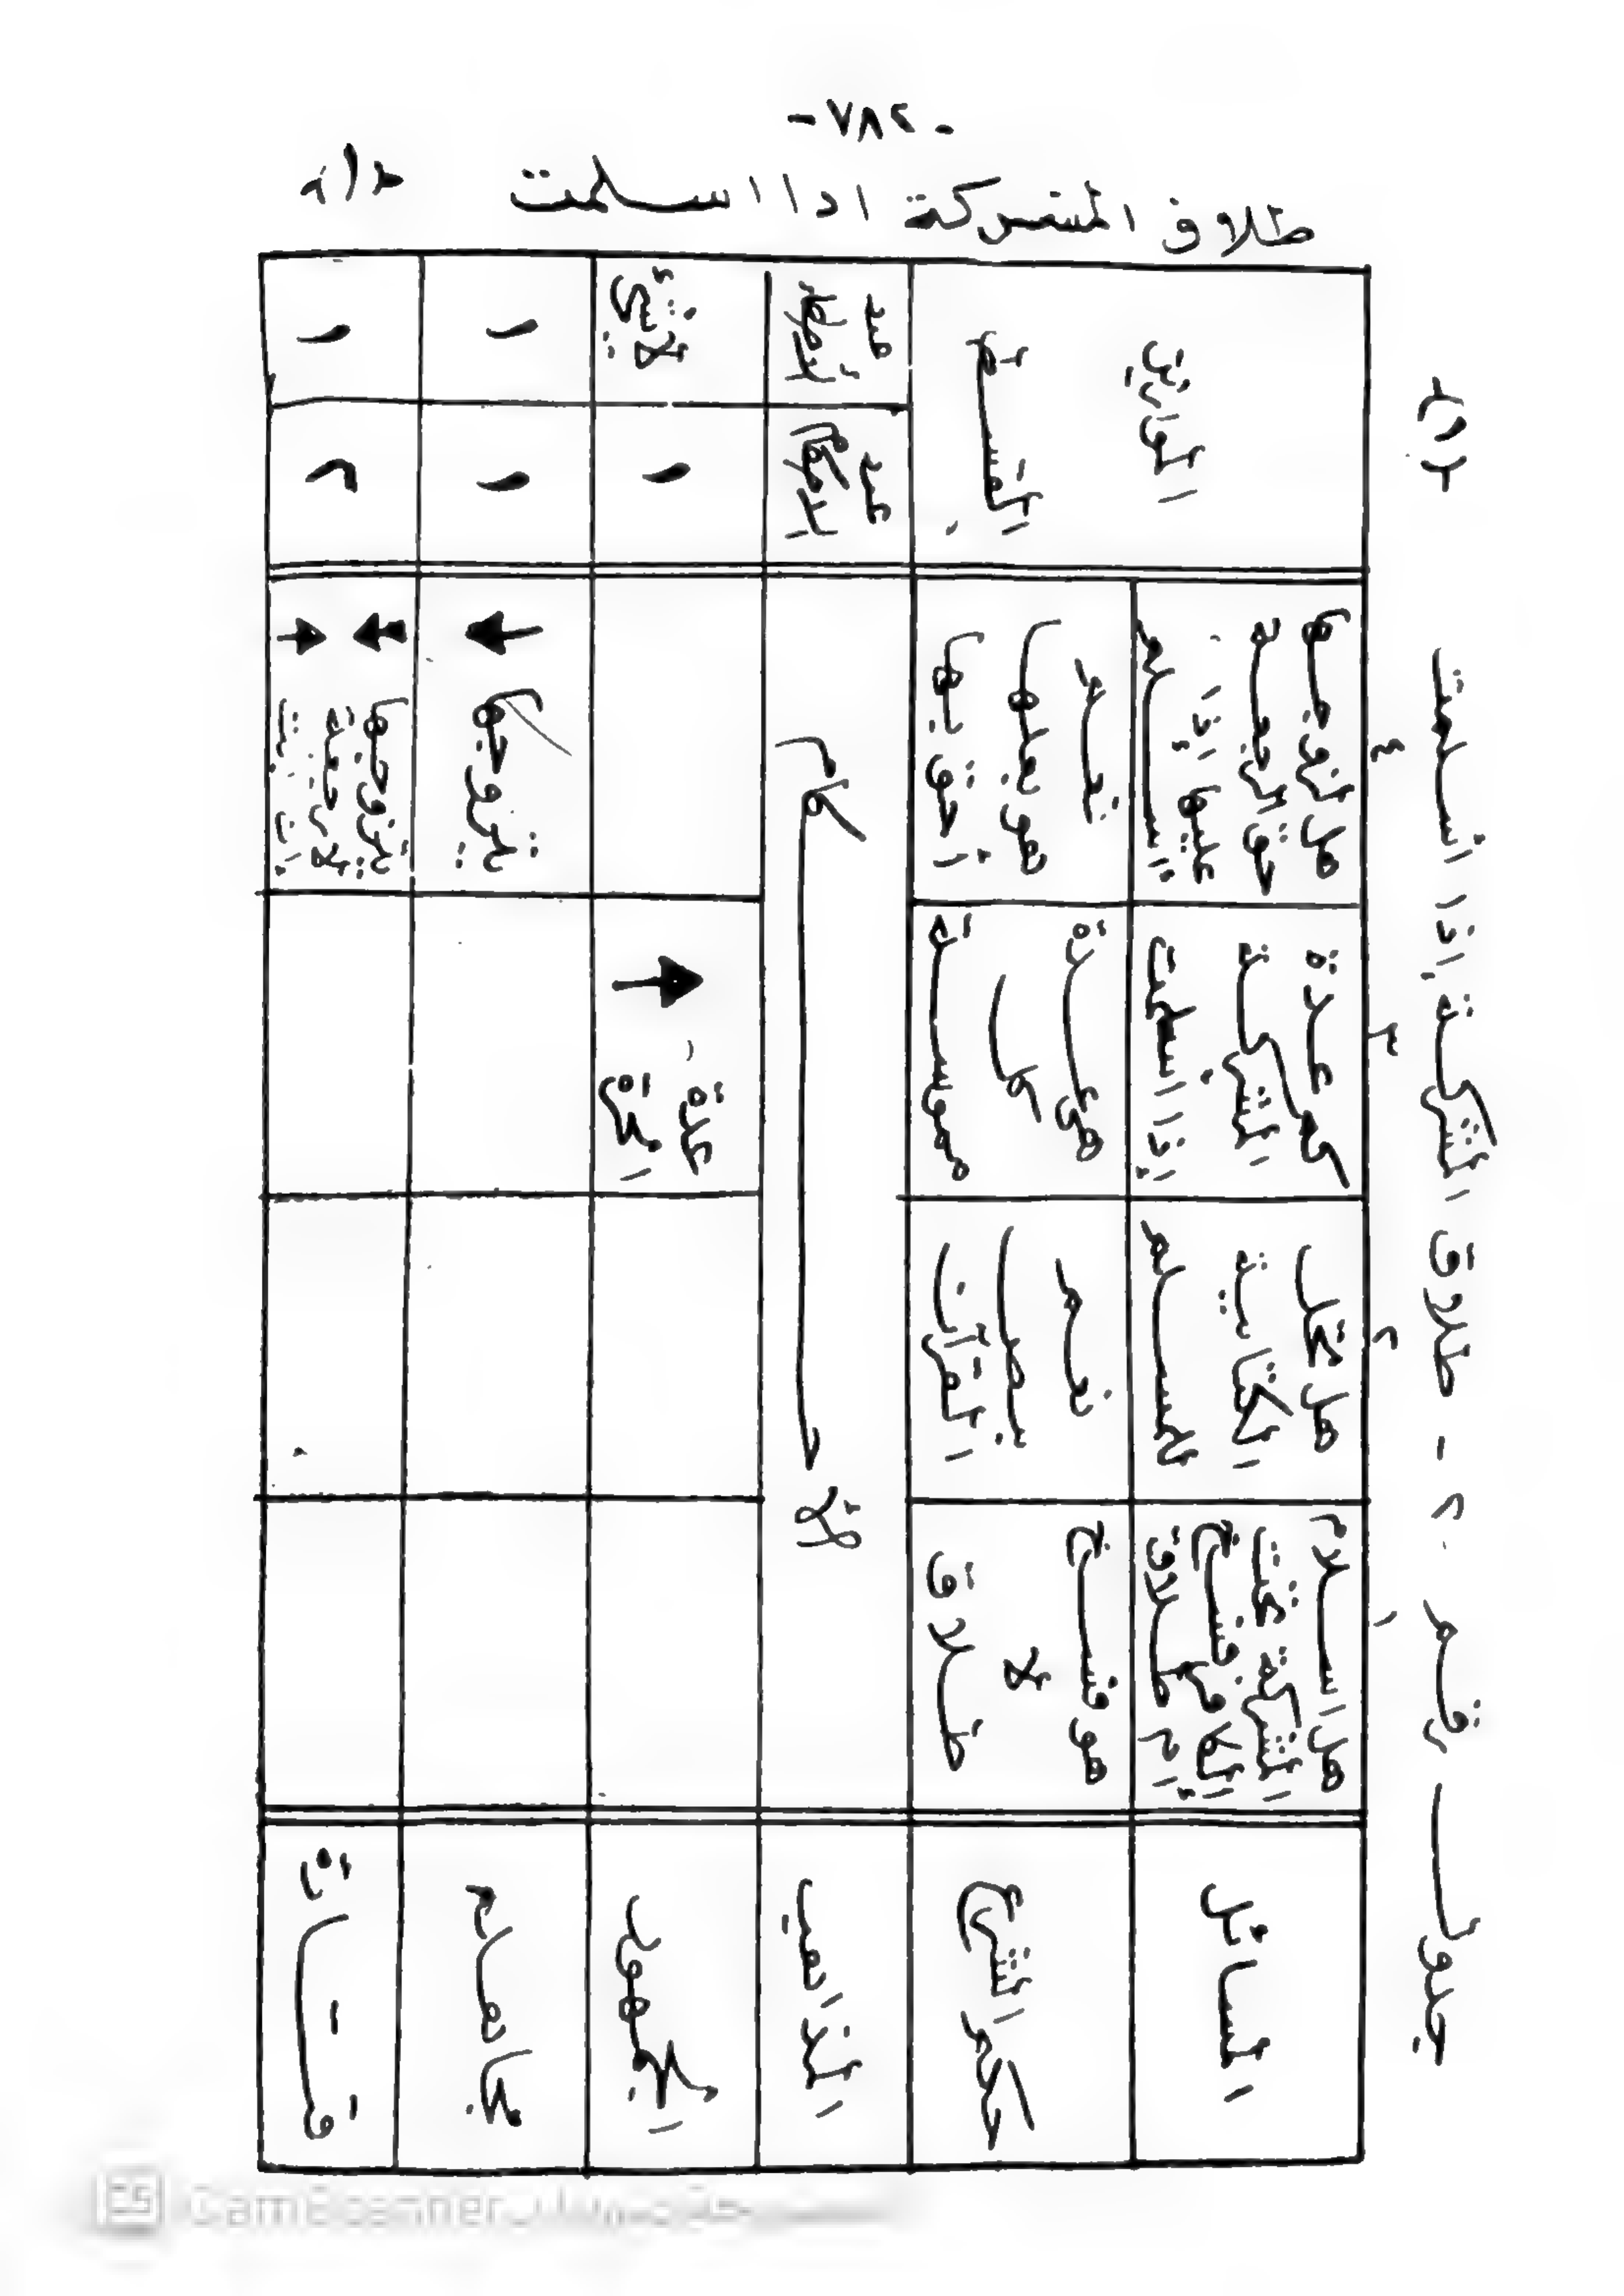 -٧٨٢-
طلاق المشركة اذا اسلمت
جدول رقم ٢ - طلاق المشركة إذا أسلمت
المسائل
١
هل اسلام
المشركة تحت
الكافر فسخ
أم طلاق
٢
هل تحل
الكتابية
للمسلم
٣
كم عدة
المشركة
إذا اسلمت
٤
هل لزوجها
حق الرجعة
عليها إذا
اسلم
الموازين
القسط
حكم الشرع
هو فسخ
لا
طلاق
نعم
بنص
القرآن
هي عدة
كل
مموسة
نعم
هو بعلها
أحق بها
المذاهب
الأحكام
عدد
الاحكام
عدد
الأخطاء
الجمهور
عدة
الحرة
١
لا شيء
مجاهد
يتزوجها
١
١
قتادة
يتزوجها
لا رجعة
٢
١
CamScanner